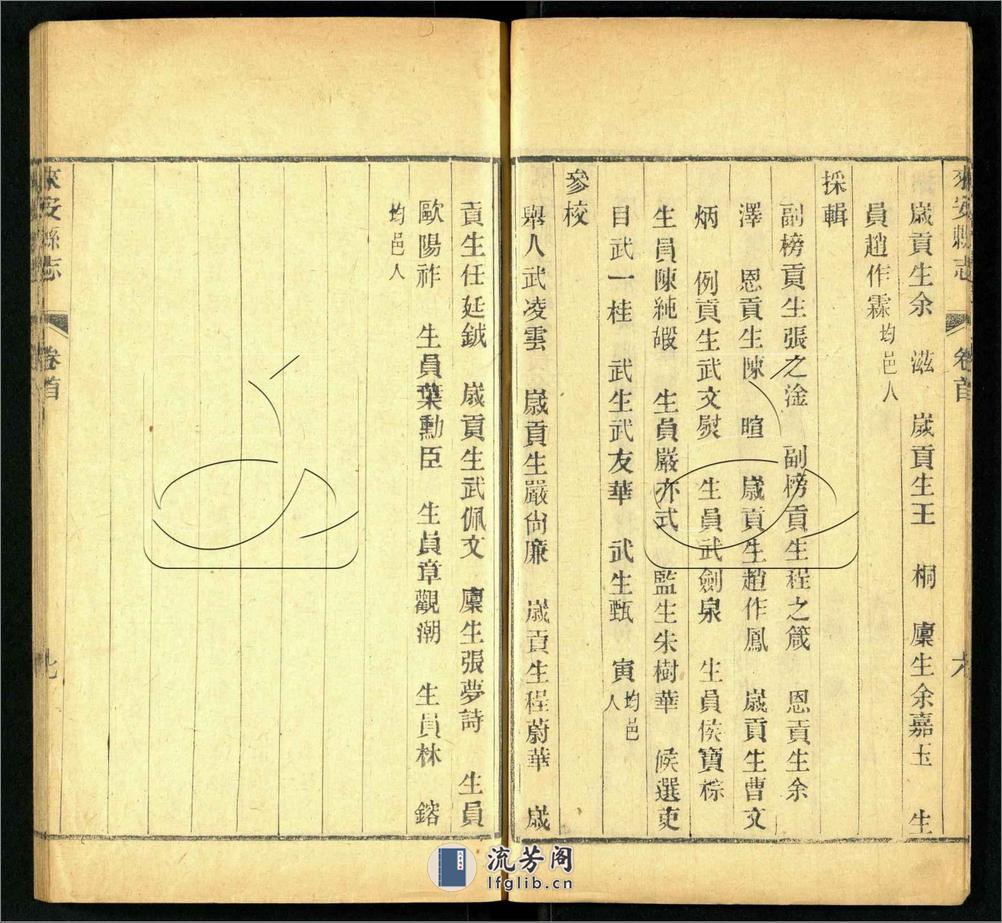 來安縣志 卷首 六
歲貢生余 滋 歲貢生王 桐 廩生余嘉玉 生
員趙作霖均邑人
採輯
副榜貢生張之淦 副榜貢生程之箴 恩貢生余
澤 恩貢生陳 暄 歲貢生趙作鳳 歲貢生曹文
炳 例貢生武文熨 生員武劍泉 生員侯寶樑
生員陳純嘏 生員嚴亦式 監生朱樹華 候選吏
目武一桂 武生武友華 武生甄 寅均邑人
參校
舉人武凌雲 歲貢生嚴尙廉 歲貢生程蔚華 歲
貢生任廷鉞 歲貢生武佩文 廩生張夢詩 生員
歐陽祚 生員葉勳臣 生員章觀潮 生員林 鎔
均邑人
來安縣志 卷首 七
流芳阁
lfglib.cn